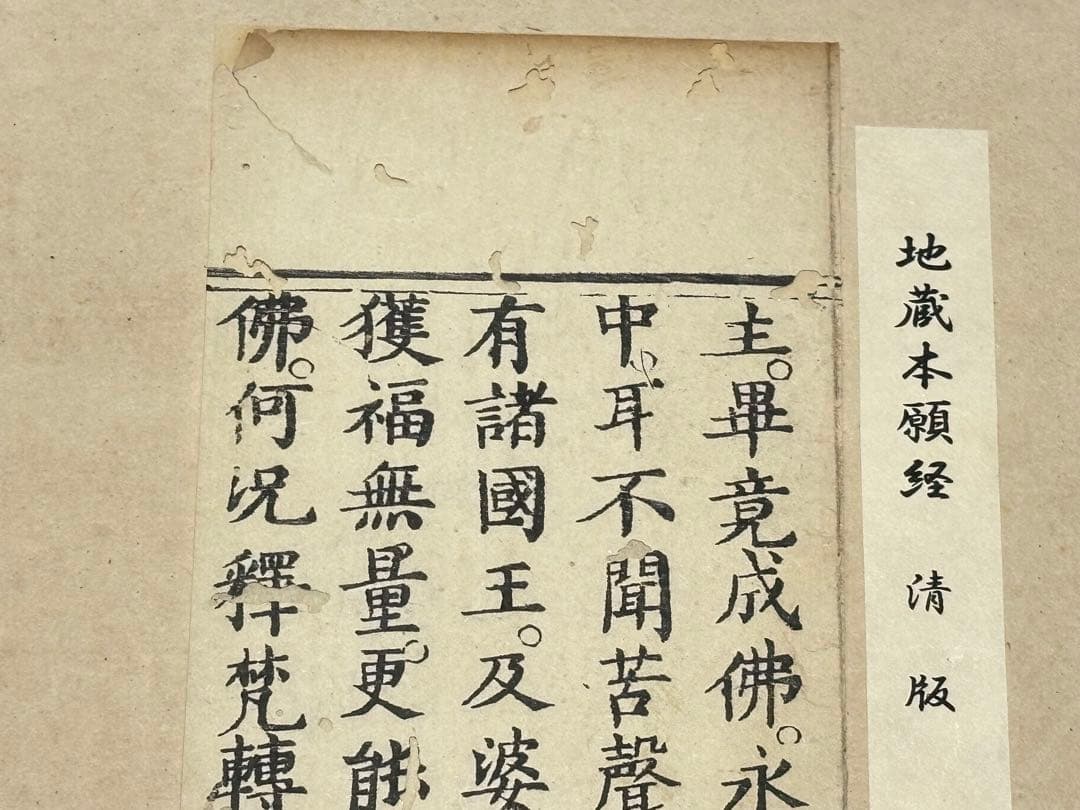 地蔵本願経 清版
主。畢竟成佛。永
中。耳不聞苦聲
有諸國王。及婆
獲福無量。更能
佛。何況釋梵轉